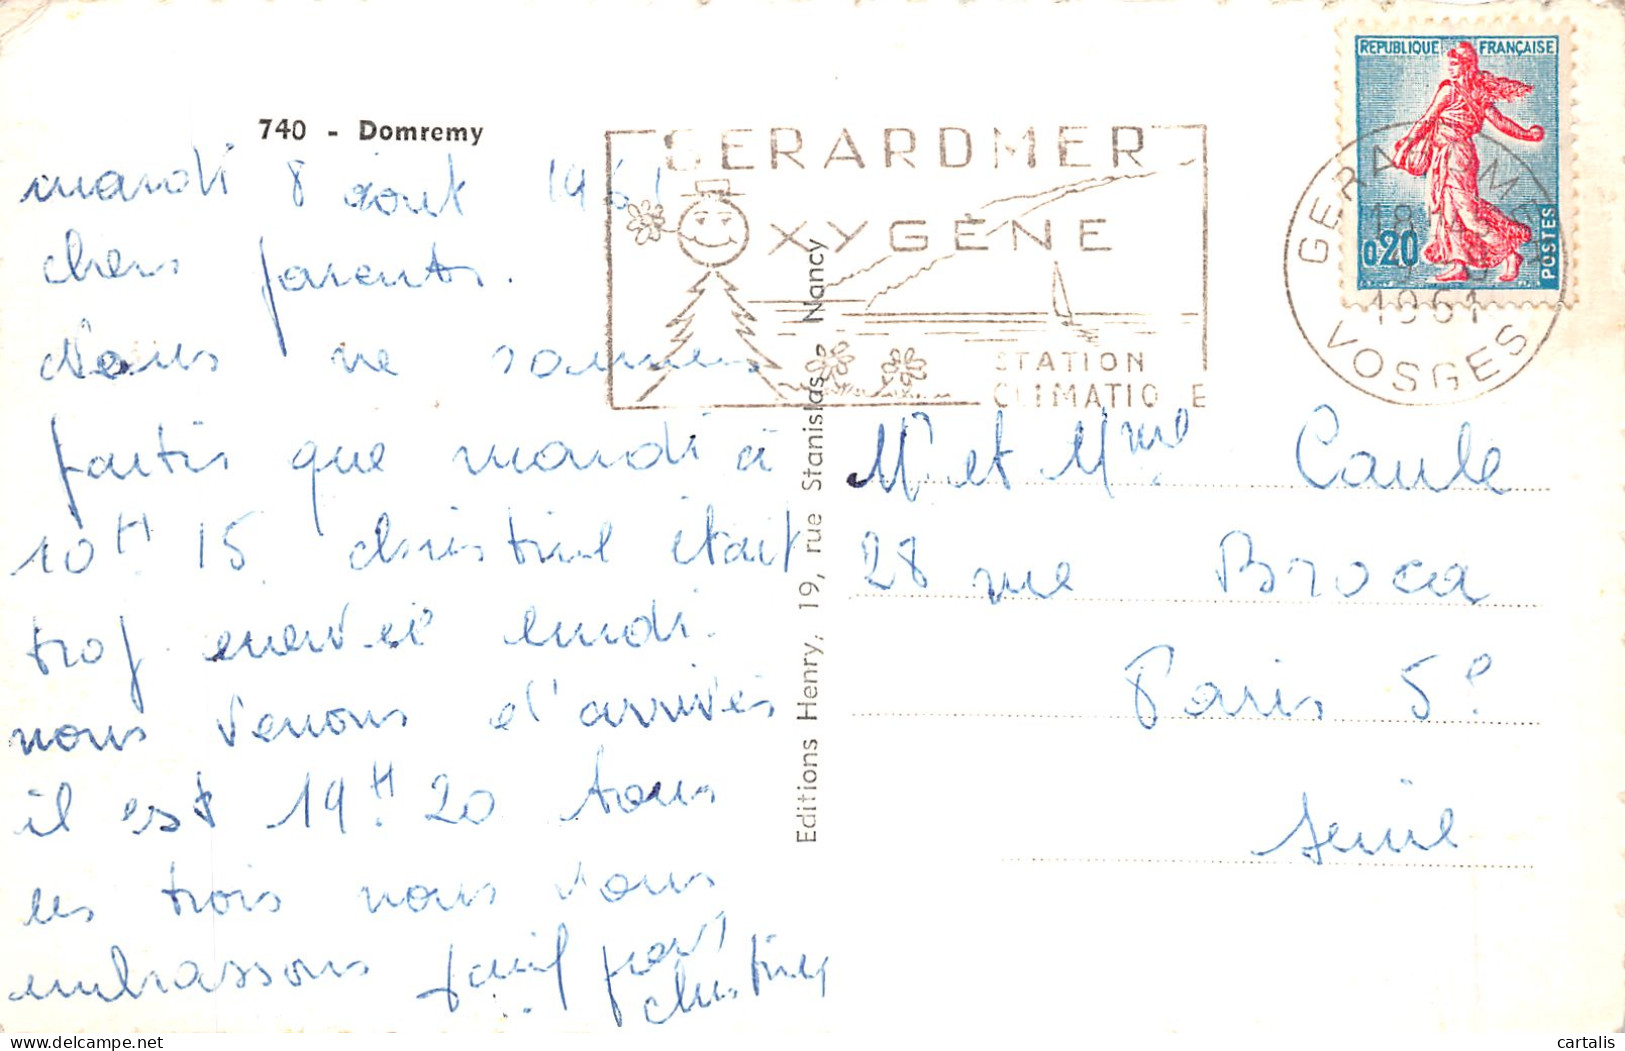 740 - Domremy
mardi 8 aout 1961
chers parents.
Nous ne sommes
partis que mardi à
10H 15 christine était
trop enervée lundi.
nous venons d'arrivés
il est 19H.20 tous
les trois nous vous
embrassons
christine
Editions Henry, 19, rue Stanislas - Nancy
GERARDMER
OXYGÈNE
STATION
CLIMATIQUE
REPUBLIQUE FRANÇAISE
0,20
POSTES
GERARDMER
18H
1961
VOSGES
Mr et Mme Caule
28 rue Broca
Paris 5e
Seine
cartalis
delcampe.net